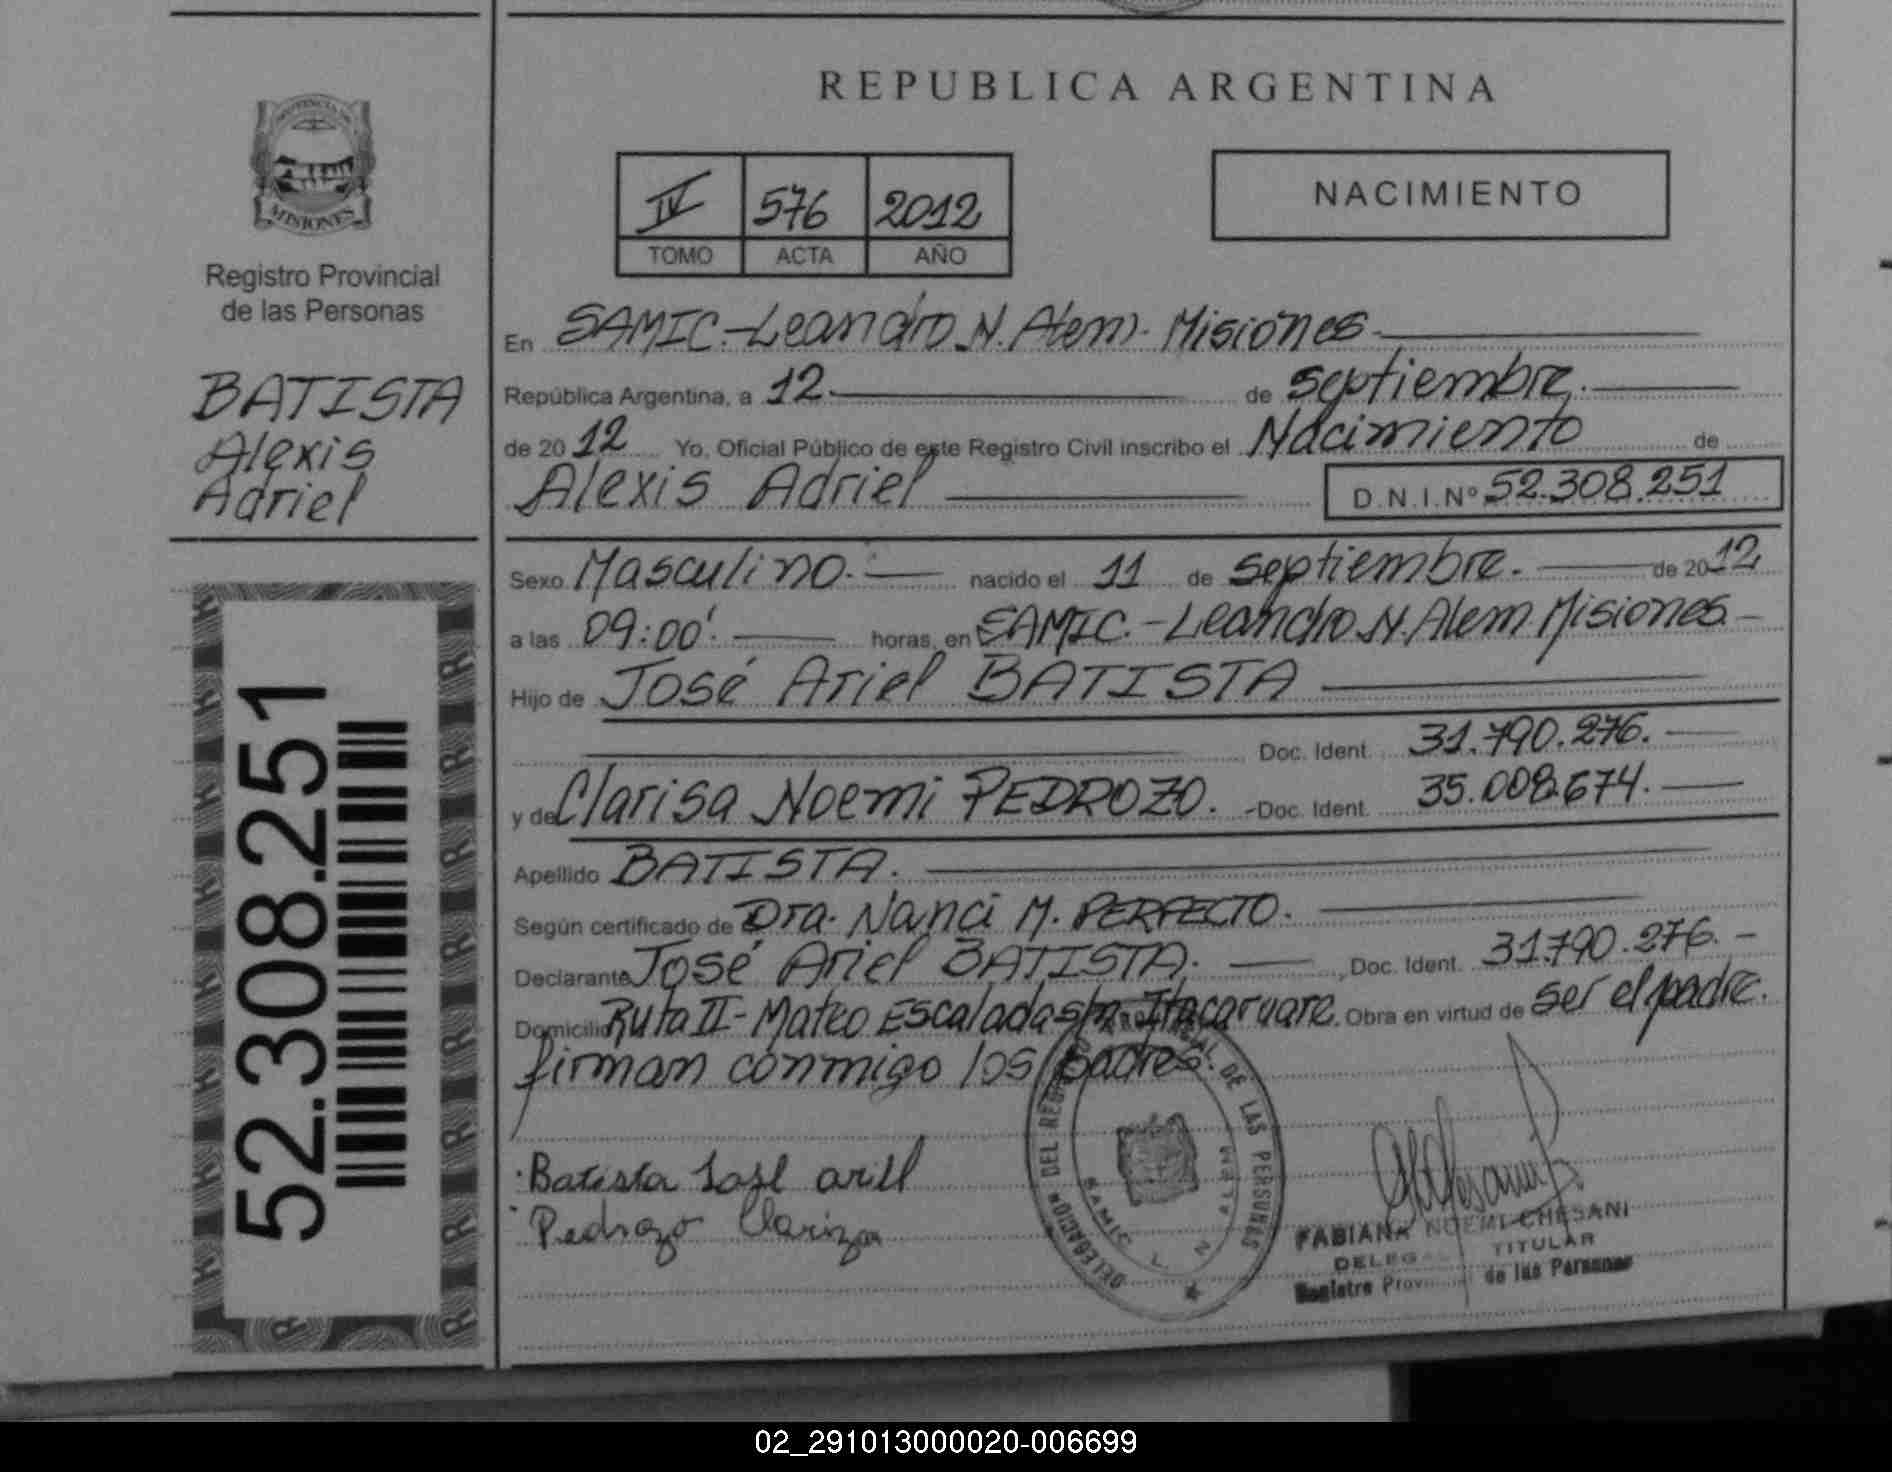 REPUBLICA ARGENTINA
PROVINCIA DE
MISIONES
Registro Provincial
de las Personas
BATISTA
Alexis
Adriel
52.308.251
IV 576 2012
TOMO ACTA AÑO
NACIMIENTO
En SAMIC.-Leandro N. Alem. Misiones.
República Argentina, a 12. de septiembre.
de 2012 Yo, Oficial Público de este Registro Civil inscribo el Nacimiento de
Alexis Adriel D.N.I.Nº 52.308.251
Sexo Masculino. nacido el 11 de septiembre. de 2012
a las 09:00'. horas, en SAMIC.-Leandro N. Alem. Misiones.-
Hijo de José Ariel BATISTA
Doc. Ident. 31.790.276.
y de Clarisa Noemi PEDROZO. -Doc. Ident. 35.008.674.
Apellido BATISTA.
Según certificado de Dra. Nanci M. PERFECTO.
Declarante José Ariel BATISTA. , Doc. Ident. 31.790.276.-
Domicilio Ruta II-Mateo Escalada s/n Itacaruare. Obra en virtud de ser el padre.
firman conmigo los padres.
Batista José ariel
Pedrozo Clariza
DELEGACION DEL REGISTRO PROVINCIAL DE LAS PERSONAS
SAMIC L. N. ALEM
FABIANA NOEMI CHESANI
DELEGADA TITULAR
Registro Provincial de las Personas
02_291013000020-006699